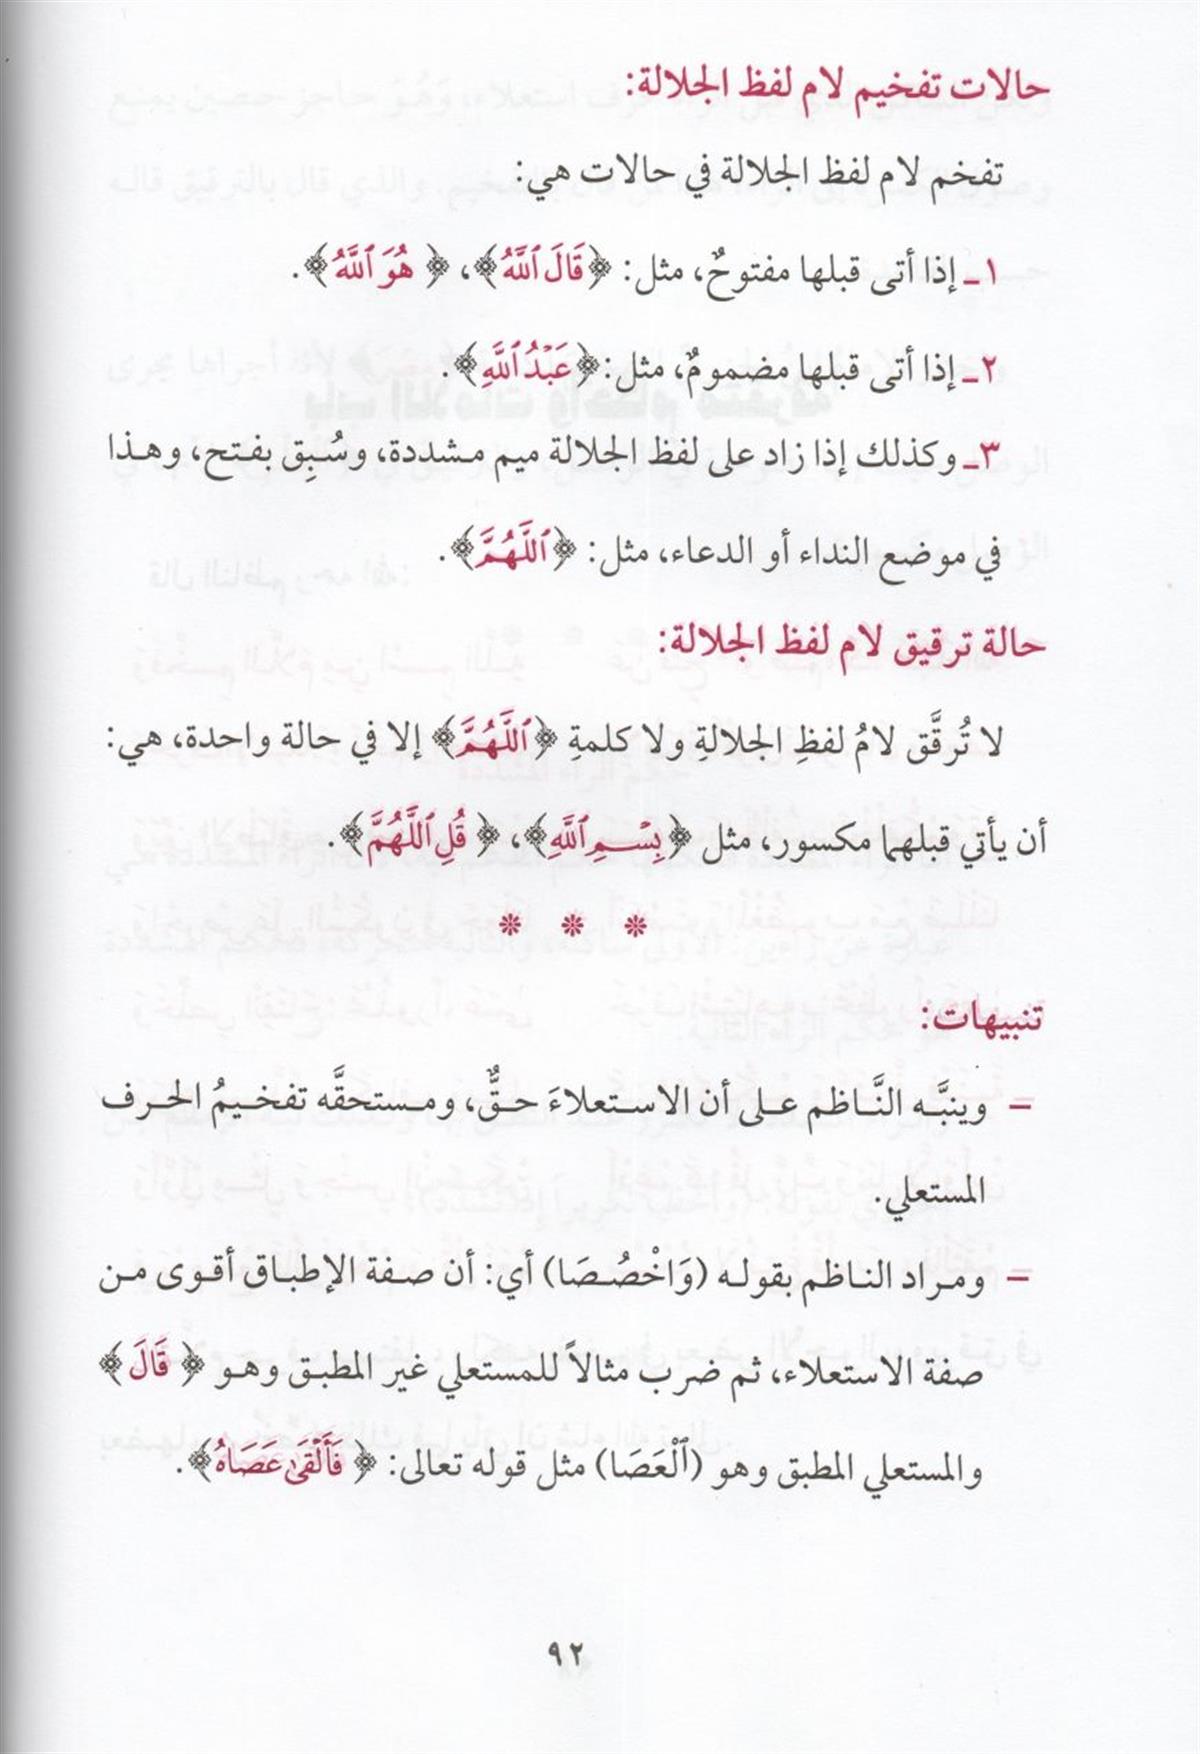 حالات تفخيم لام لفظ الجلالة:
تفخم لام لفظ الجلالة في حالات هي:
١ـ إذا أتى قبلها مفتوحٌ، مثل: ﴿قَالَ ٱللَّهُ﴾، ﴿هُوَ ٱللَّهُ﴾.
٢ـ إذا أتى قبلها مضمومٌ، مثل: ﴿عَبْدُ ٱللَّهِ﴾.
٣ـ وكذلك إذا زاد على لفظ الجلالة ميم مشددة، وسُبِق بفتح، وهذا
في موضع النداء أو الدعاء، مثل: ﴿ٱللَّهُمَّ﴾.
حالة ترقيق لام لفظ الجلالة:
لا تُرقَّق لامُ لفظِ الجلالةِ ولا كلمةِ ﴿ٱللَّهُمَّ﴾ إلا في حالة واحدة، هي:
أن يأتي قبلهما مكسور، مثل ﴿بِسْمِ ٱللَّهِ﴾، ﴿قُلِ ٱللَّهُمَّ﴾.
* * *
تنبيهات:
– وينبَّه النَّاظم على أن الاستعلاءَ حقٌّ، ومستحقَّه تفخيمُ الحرف
المستعلي.
– ومراد الناظم بقوله (وَاخْصُصَا) أي: أن صفة الإطباق أقوى من
صفة الاستعلاء، ثم ضرب مثالاً للمستعلي غير المطبق وهو ﴿قَالَ﴾
والمستعلي المطبق وهو (ٱلْعَصَا) مثل قوله تعالى: ﴿فَأَلْقَىٰ عَصَاهُ﴾.
٩٢